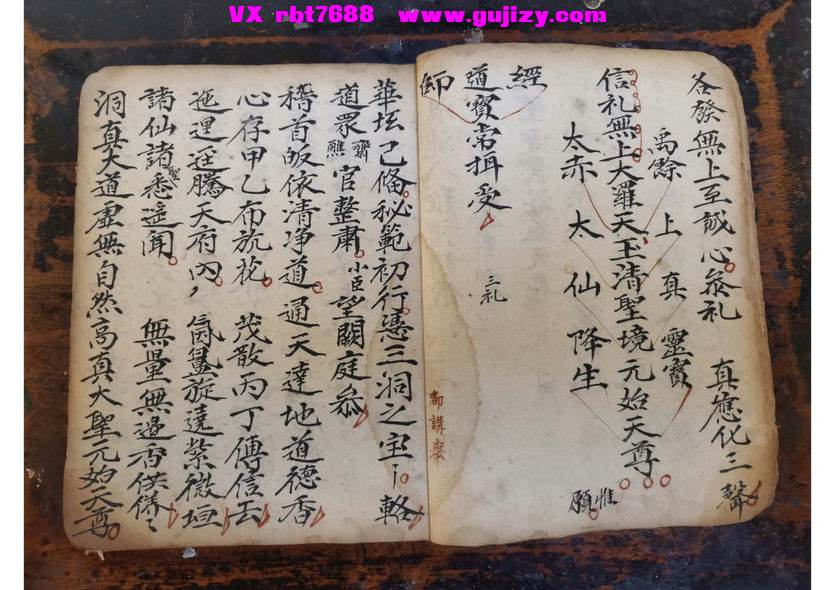 VX rbt7688 www.gujizy.com
各發無上至誠心叅礼 真應化三聲
禹餘 上真 靈寶
信礼無上大羅天玉清聖境元始天尊
太赤 太仙 降生
惟願
經
道寶常揖受
師
三礼
都講舉
華坛已俻秘範初行憑三洞之宝
道眾齋醮官整肅小臣望闕庭叅
稽首皈依清净道通天達地道德香
心存甲乙布旂花 茂散丙丁傳信去
迤邐迋騰天府內 氤氳旋遶紫微垣
諸仙諸聖悉遙聞 無量無邉香供様
洞真大道虛無自然高真大聖元始天尊